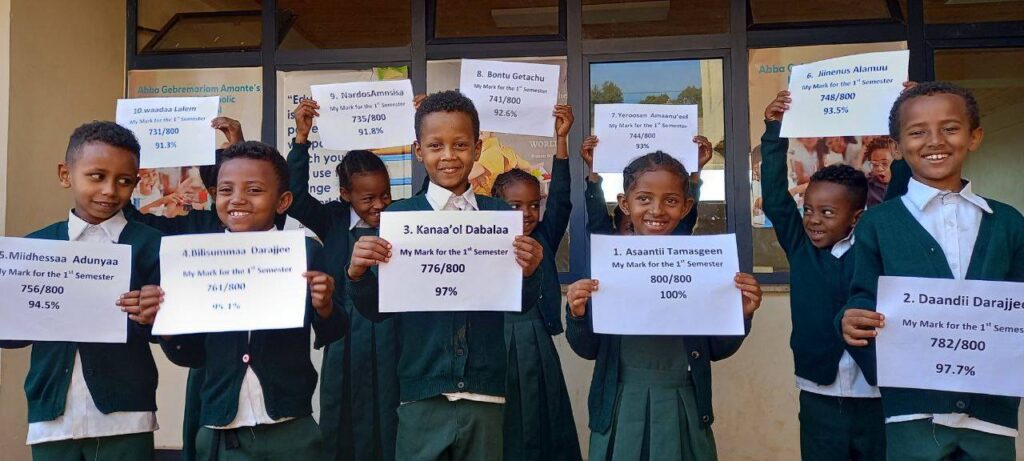 10.waadaa Lalem
My Mark for the 1st Semester
731/800
91.3%
9. NardosAmnisa
My Mark for the 1st Semester
735/800
91.8%
8. Bontu Getachu
My Mark for the 1st Semester
741/800
92.6%
7. Yeroosan Amaanu'eel
My Mark for the 1st Semester
744/800
93%
6. Jiinenus Alamuu
My Mark for the 1st Semester
748/800
93.5%
5. Miidhessaa Adunyaa
My Mark for the 1st Semester
756/800
94.5%
4.Bilisummaa Darajjee
My Mark for the 1st Semester
761/800
95.1%
3. Kanaa'ol Dabalaa
My Mark for the 1st Semester
776/800
97%
1. Asaantii Tamasgeen
My Mark for the 1st Semester
800/800
100%
2. Daandii Darajjee
My Mark for the 1st Semester
782/800
97.7%
Abba Gebremariam Amante's